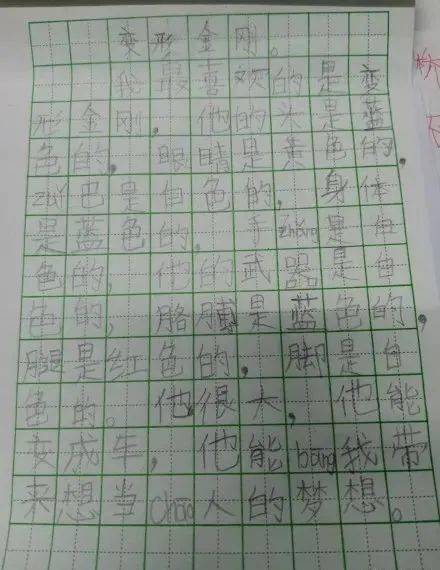 变形金刚。
我最喜欢的是变
形金刚，他的头是蓝
色的，眼睛是黄色的，
zuǐ巴是白色的，身体
是蓝色的，手zhǎng是白
色的，他的武器是白
色的，胳膊是蓝色的，
腿是红色的，脚是白
色的。他很大，他能
变成车，他能bāng我带
来想当chāo人的梦想。